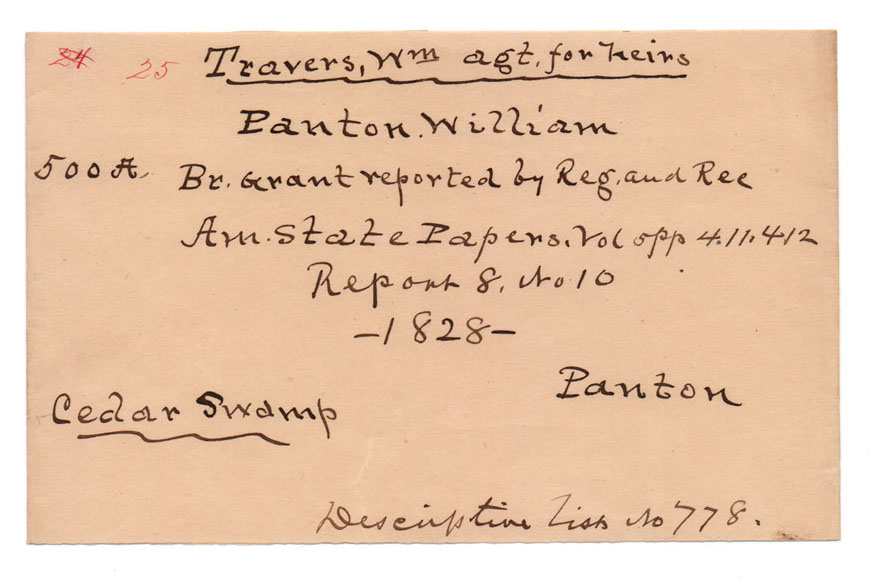 24 25 Travers, Wm agt. for heirs
Panton. William
500 A. Br. Grant reported by Reg. and Rec
Am. State Papers. Vol 5 pp 411.412
Report 8, No 10
-1828-
Panton
Cedar Swamp
Descriptive List No 778.